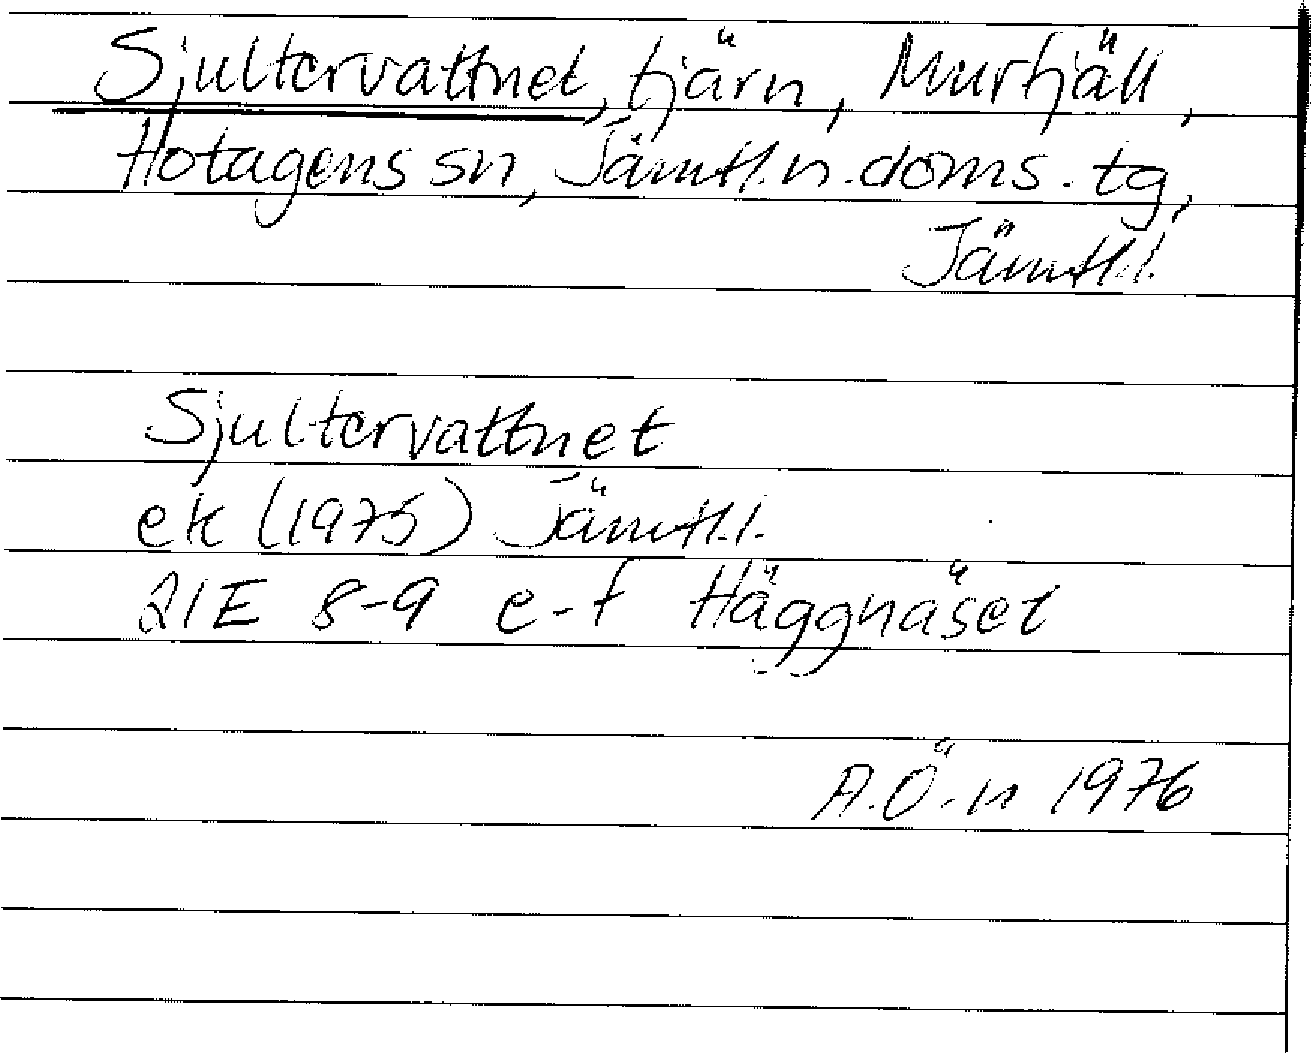 Sjultervattnet, tjärn, Murfjäll,
Hotagens sn, Jämtl.n.doms.tg,
Jämtl.l.
Sjultervattnet
ek (1975) Jämtl.l.
21E 8-9 e-f Häggnäset
A.Ö-n 1976